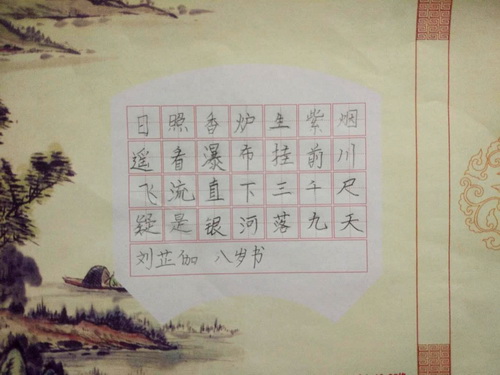 日照香炉生紫烟
遥看瀑布挂前川
飞流直下三千尺
疑是银河落九天
刘芷伽 八岁书